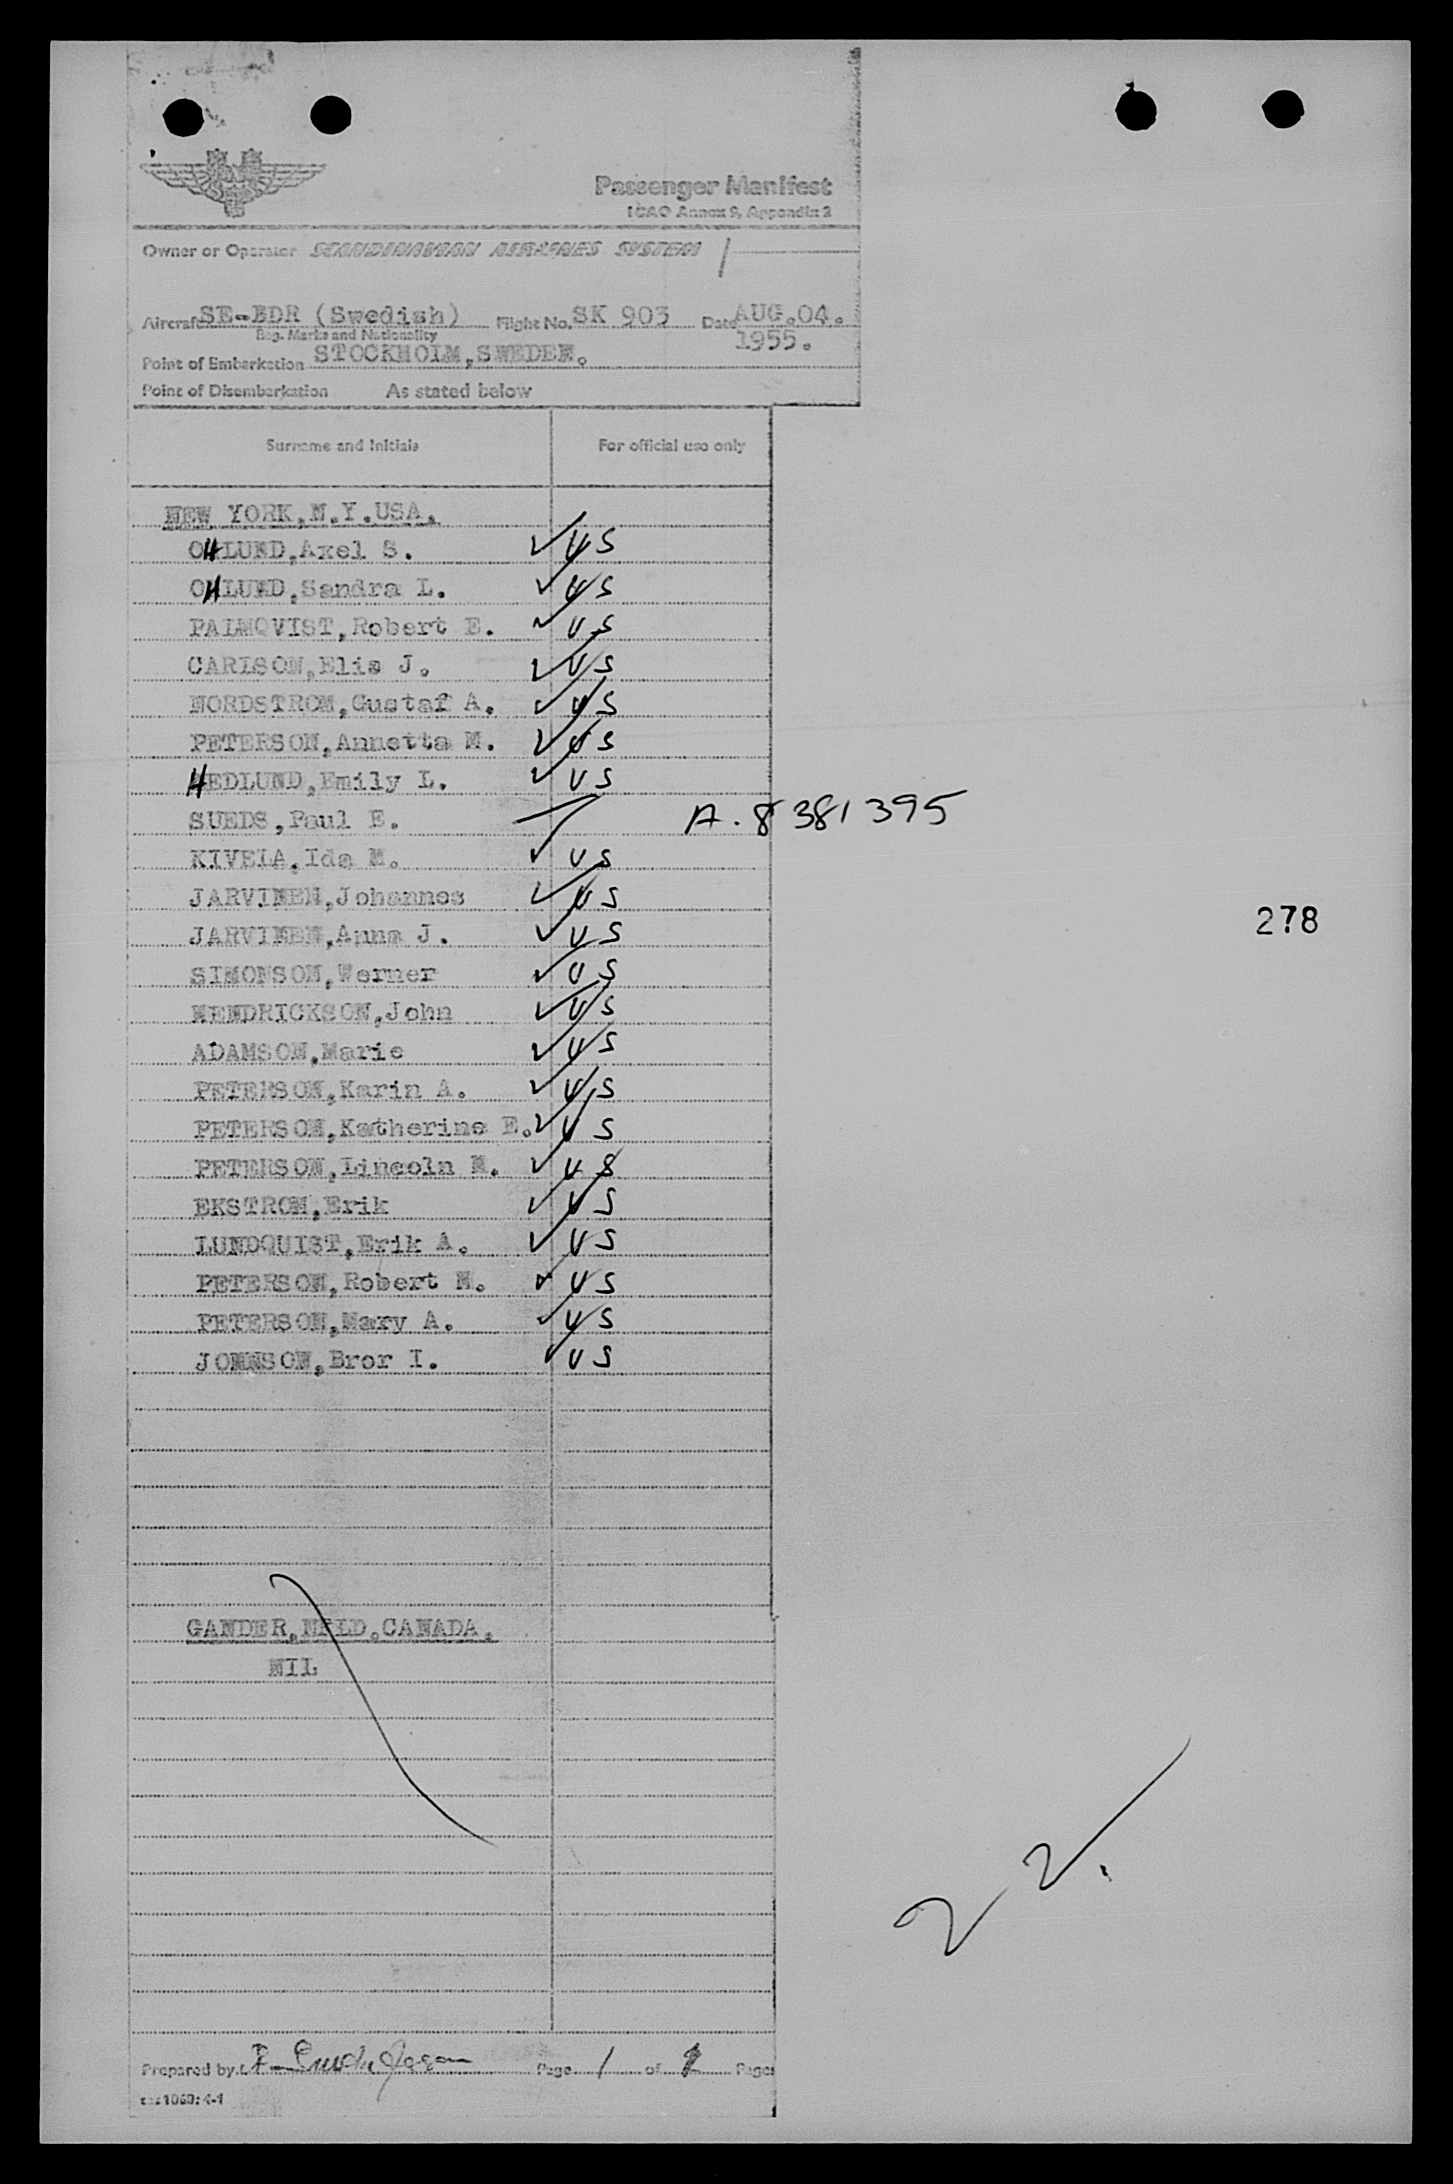 Passenger Manifest
ICAO Annex 9, Appendix 2
Owner or Operator SCANDINAVIAN AIRLINES SYSTEM
Aircraft SE-BDR (Swedish) Flight No. SK 903 Date AUG.04.
Reg. Marks and Nationality 1955.
Point of Embarkation STOCKHOLM,SWEDEN.
Point of Disembarkation As stated below
Surname and Initials For official use only
NEW YORK,N.Y.USA.
OHLUND,Axel S. ✓ US
OHLUND,Sandra L. ✓ US
PALMQVIST,Robert E. ✓ US
CARLSON,Elis J. ✓ US
NORDSTROM,Gustaf A. ✓ US
PETERSON,Annetta M. ✓ US
HEDLUND,Emily L. ✓ US
SUEDS,Paul E. A.8381395
KIVELA,Ida M. ✓ US
JARVINEN,Johannes ✓ US
278
JARVINEN,Anna J. ✓ US
SIMONSON,Werner ✓ US
HENDRICKSON,John ✓ US
ADAMSON,Marie ✓ US
PETERSON,Karin A. ✓ US
PETERSON,Katherine E. ✓ US
PETERSON,Lincoln M. ✓ US
EKSTROM,Erik ✓ US
LUNDQUIST,Erik A. ✓ US
PETERSON,Robert M. ✓ US
PETERSON,Mary A. ✓ US
JOHNSON,Bror I. ✓ US
GANDER,NFLD.CANADA.
NIL
22
Prepared by Page 1 of Pages
1060: 4-4